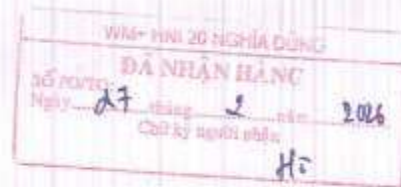 WM+ HNI 20 NGHĨA DŨNG
ĐÃ NHẬN HÀNG
SỐ PO/TO:
Ngày 27 tháng 2 năm 2026
Chữ ký người nhận